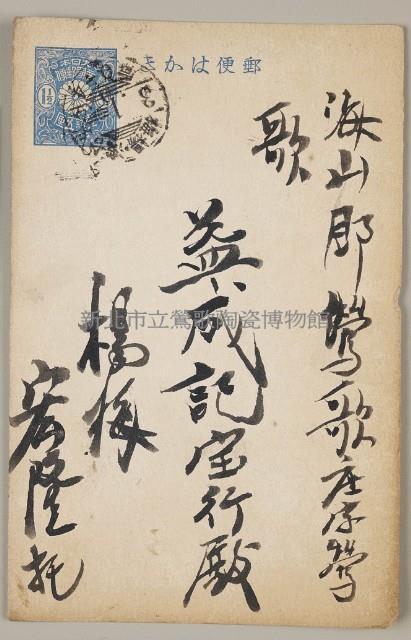 郵便はかき
1½
海山郡鶯歌庄字鶯
歌
益成記宝行殿
楊梅
宏隆托
新北市立鶯歌陶瓷博物館